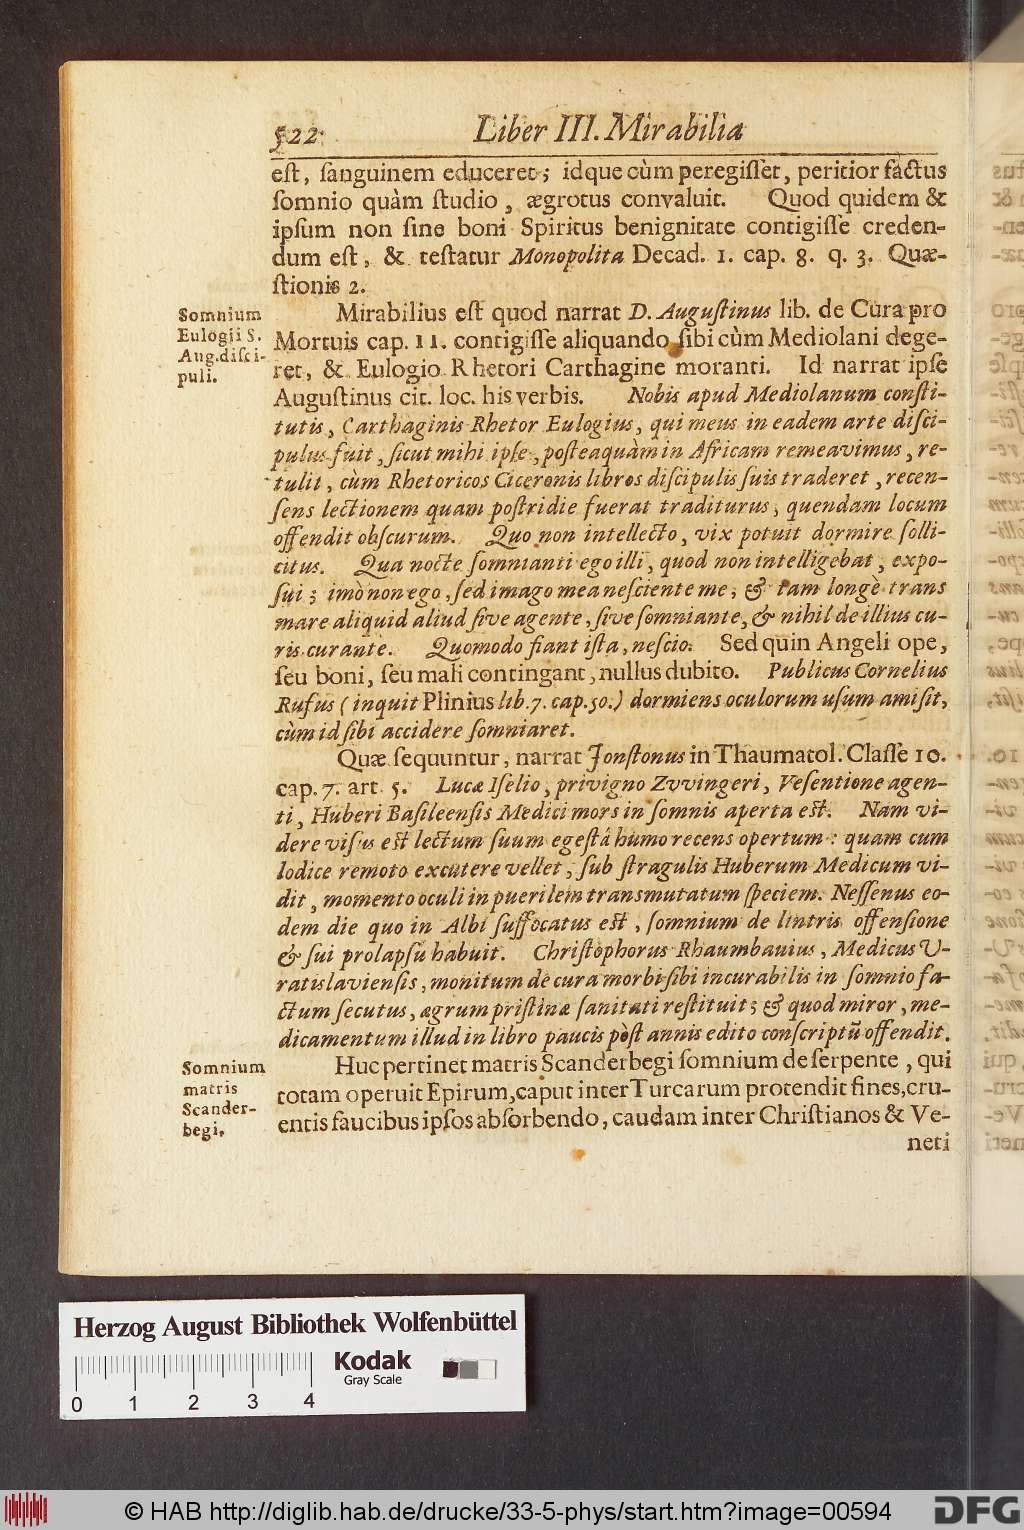 522. Liber III. Mirabilia
est, sanguinem educeret; idque cùm peregisset, peritior factus
somnio quàm studio, ægrotus convaluit. Quod quidem &
ipsum non sine boni Spiritus benignitate contigisse creden-
dum est, & testatur Monopolita Decad. 1. cap. 8. q. 3. Quæ-
stionis 2.
Somnium
Eulogii S.
Aug. disci-
puli.
Mirabilius est quod narrat D. Augustinus lib. de Cura pro
Mortuis cap. 11. contigisse aliquando sibi cùm Mediolani dege-
ret, & Eulogio Rhetori Carthagine moranti. Id narrat ipse
Augustinus cit. loc. his verbis. Nobis apud Mediolanum consti-
tutis, Carthaginis Rhetor Eulogius, qui meus in eadem arte disci-
pulus fuit, sicut mihi ipse, posteaquàm in Africam remeavimus, re-
tulit, cùm Rhetoricos Ciceronis libros discipulis suis traderet, recen-
sens lectionem quam postridie fuerat traditurus, quendam locum
offendit obscurum. Quo non intellecto, vix potuit dormire solli-
citus. Qua nocte somnianti ego illi, quod non intelligebat, expo-
sui; imò non ego, sed imago mea nesciente me, & tam longè trans
mare aliquid aliud sive agente, sive somniante, & nihil de illius cu-
ris curante. Quomodo fiant ista, nescio. Sed quin Angeli ope,
seu boni, seu mali contingant, nullus dubito. Publicus Cornelius
Rufus (inquit Plinius lib. 7. cap. 50.) dormiens oculorum usum amisit,
cùm id sibi accidere somniaret.
Quæ sequuntur, narrat Jonstonus in Thaumatol. Classe 10.
cap. 7. art. 5. Lucæ Iselio, privigno Zvvingeri, Vesentione agen-
ti, Huberi Basileensis Medici mors in somnis aperta est. Nam vi-
dere visus est lectum suum egestâ humo recens opertum: quam cum
lodice remoto excutere vellet, sub stragulis Huberum Medicum vi-
dit, momento oculi in puerilem transmutatum speciem. Nessenus eo-
dem die quo in Albi suffocatus est, somnium de lintris offensione
& sui prolapsu habuit. Christophorus Rhaumbauius, Medicus U-
ratislaviensis, monitum de cura morbi sibi incurabilis in somnio fa-
ctum secutus, ægrum pristinæ sanitati restituit; & quod miror, me-
dicamentum illud in libro paucis pòst annis edito conscriptū offendit.
Somnium
matris
Scander-
begi.
Huc pertinet matris Scanderbegi somnium de serpente, qui
totam operuit Epirum, caput inter Turcarum protendit fines, cru-
entis faucibus ipsos absorbendo, caudam inter Christianos & Ve-
neti
Herzog August Bibliothek Wolfenbüttel
Kodak
Gray Scale
0 1 2 3 4
© HAB http://diglib.hab.de/drucke/33-5-phys/start.htm?image=00594
DFG